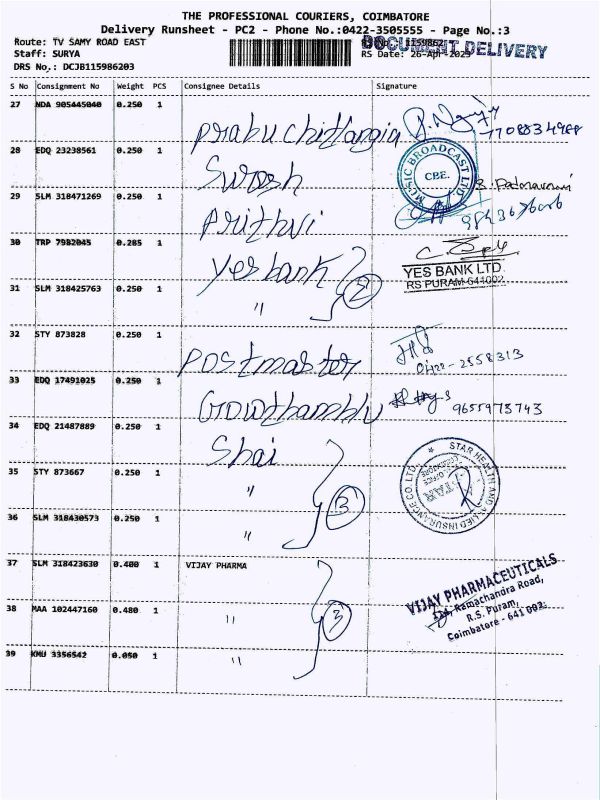 THE PROFESSIONAL COURIERS, COIMBATORE
Delivery Runsheet - PC2 - Phone No.:0422-3505555 - Page No.:3
Route: TV SAMY ROAD EAST
DOCUMENT DELIVERY
Staff: SURYA
RS Date: 26-Apr-2025
DRS No.: DCJB115986203
S No Consignment No Weight PCS Consignee Details Signature
27 NDA 905445040 0.250 1 Prabu
7708834988
28 EDQ 23238561 0.250 1 Suresh
MUSIC BROADCAST LTD
CBE.
29 SLM 318471269 0.250 1 Prithvi
30 TRP 7982045 0.285 1 Yes bank
YES BANK LTD
RS PURAM-641002
31 SLM 318425763 0.250 1 "
2
32 STY 873828 0.250 1 Postmaster
0422-2558313
33 EDQ 17491025 0.250 1
9655973743
34 EDQ 21487889 0.250 1 Shai
STAR HEALTH AND ALLIED INSURANCE CO.LTD.
STAR
35 STY 873667 0.250 1 "
3
36 SLM 318430573 0.250 1 "
37 SLM 318423630 0.400 1 VIJAY PHARMA
VIJAY PHARMACEUTICALS
Ramachandra Road,
R.S. Puram,
Coimbatore - 641 002.
38 MAA 102447160 0.480 1 "
3
39 KMU 3356542 0.050 1 "